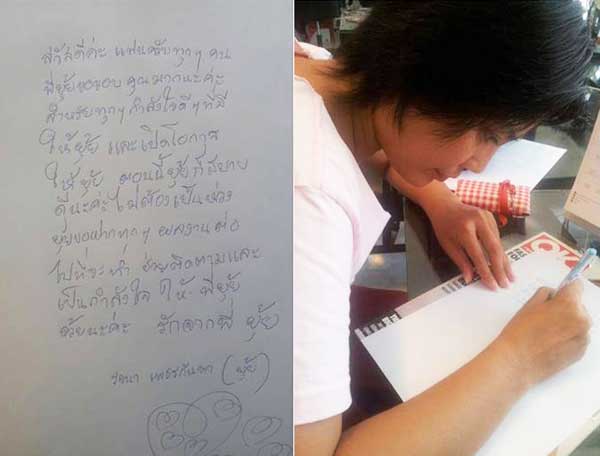 สวัสดีค่ะ แฟนคลับทุกๆ คน
พี่ยุ้ยขอขอบคุณมากนะค่ะ
สำหรับทุกๆ กำลังใจดีๆที่มี
ให้ยุ้ย และเปิดโอกาส
ให้ยุ้ย ตอนนี้ยุ้ยก็สบาย
ดีนะค่ะไม่ต้องเป็นห่วง
ยุ้ยขอฝากทุกๆ ผลงานต่อ
ไปที่จะทำ ช่วยติดตามและ
เป็นกำลังใจ ให้ พี่ยุ้ย
ด้วยนะค่ะ รักจากพี่ ยุ้ย
รจนา เพชรกัณหา (ยุ้ย)